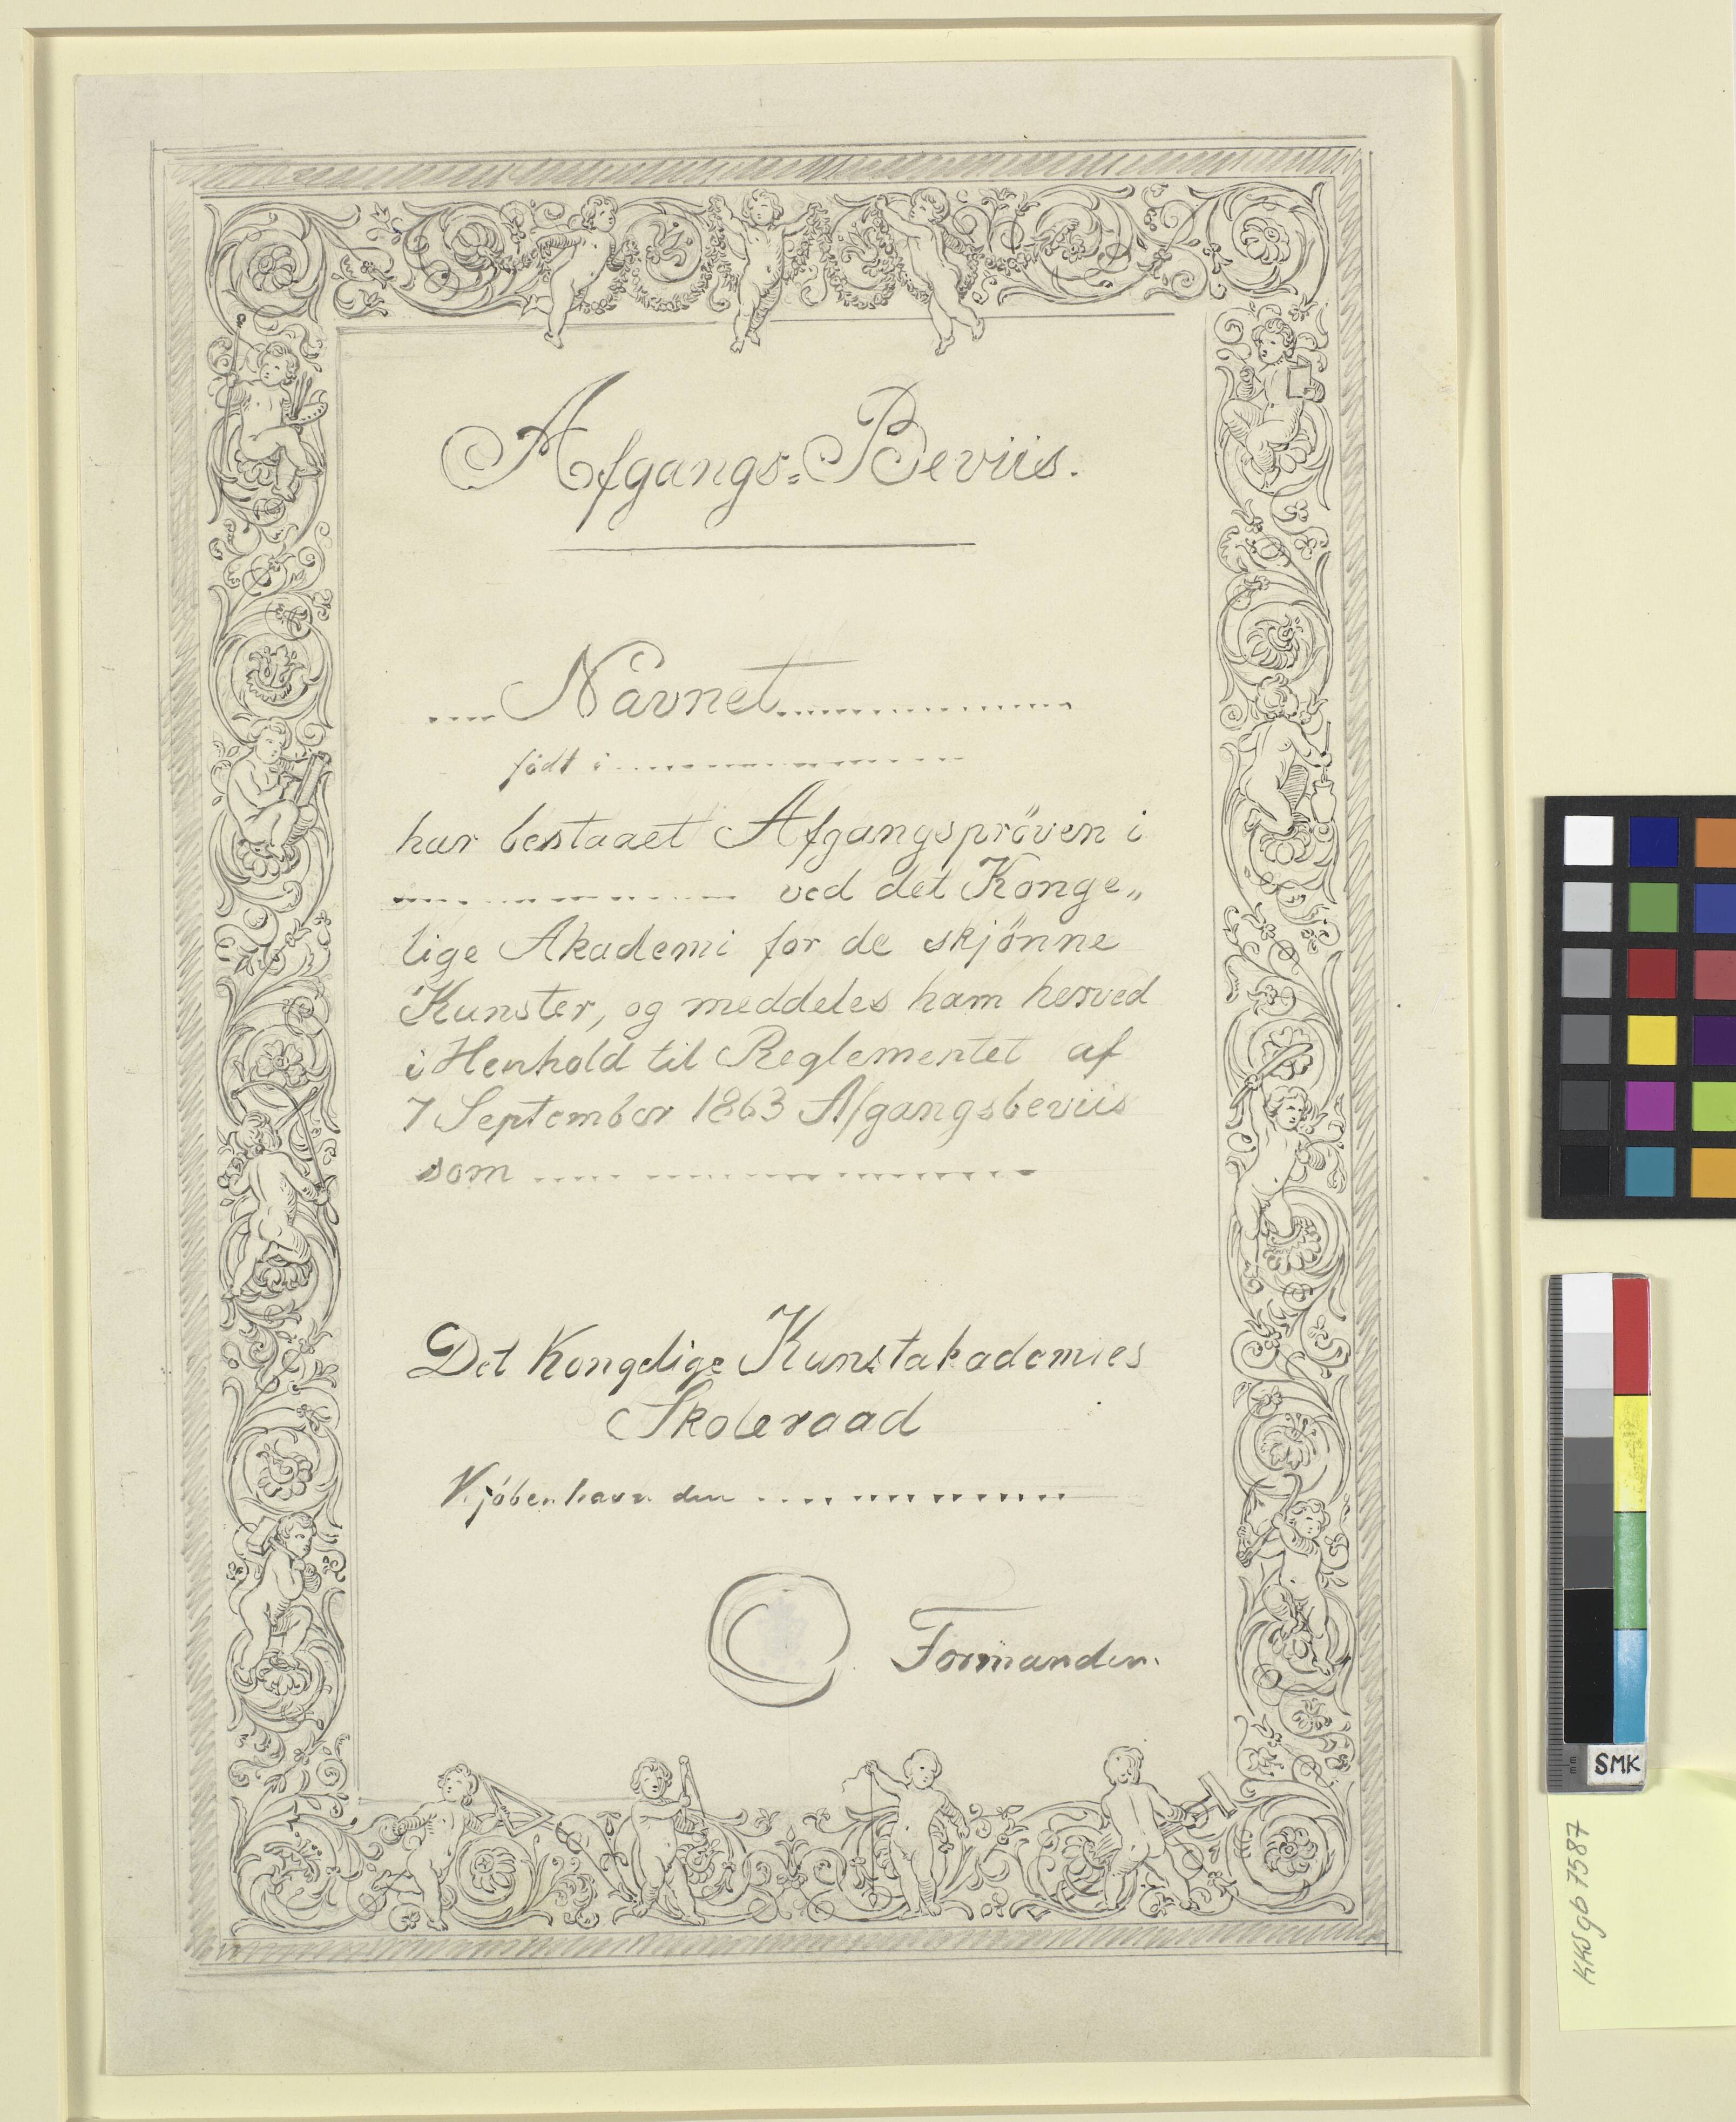 Afgangs=Beviis.
.... Navnet ....................
födt i ....................
har bestaaet Afgangspröven i
.................... ved det Konge„
lige Akademi for de skjönne
Kunster, og meddeles ham herved
i Henhold til Reglementet af
7 September 1863 Afgangsbeviis
som ....................
Det Kongelige Kunstakademies
Skoleraad
Kjöbenhavn den ....................
Formanden.
SMK
KKSgb 7587